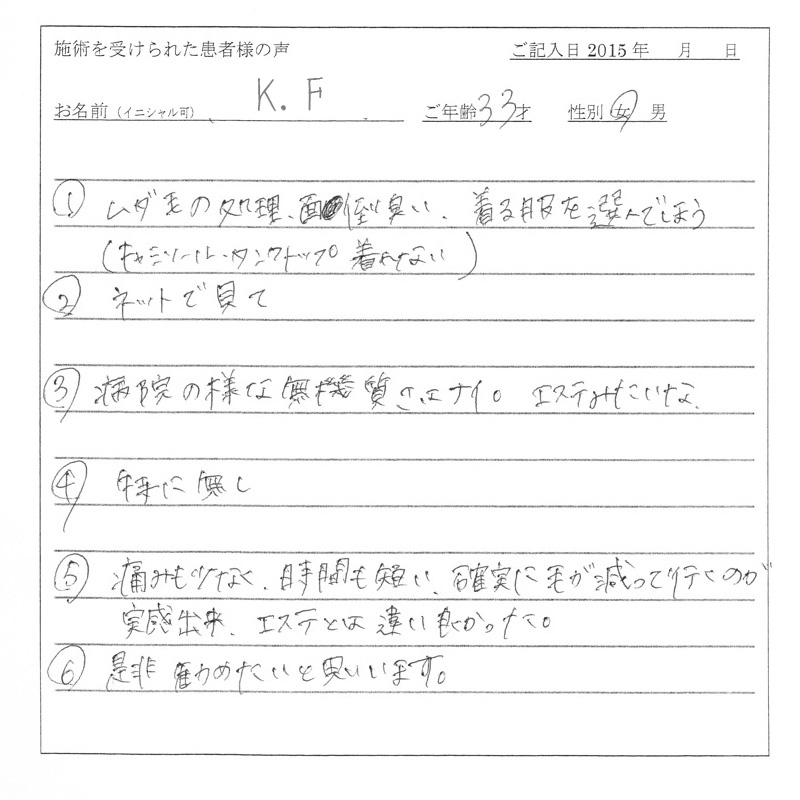 施術を受けられた患者様の声 ご記入日 2015 年 月 日
お名前 (イニシャル可) K.F ご年齢 33才 性別 女 男
① ムダ毛の処理、面倒臭い、着る服を選んでしまう
(キャミソール・タンクトップ着れない)
② ネットで見て
③ 病院の様な無機質さはナイ。エステみたいな、
④ 特に無し
⑤ 痛みも少なく、時間も短い、確実に毛が減って行くのが
実感出来、エステとは違い良かった。
⑥ 是非勧めたいと思いいます。